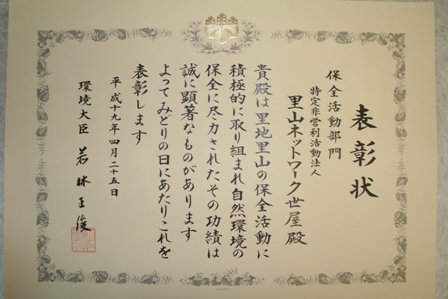 表彰状
保全活動部門
特定非営利活動法人
里山ネットワーク世屋 殿
貴殿は里地里山の保全活動に
積極的に取り組まれ自然環境の
保全に尽力されたその功績は
誠に顕著なものがあります
よってみどりの日にあたりこれを
表彰します
平成十九年四月二十五日
環境大臣 若林正俊